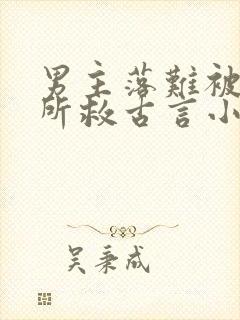 男主落難被
所救古言小
吴秉成